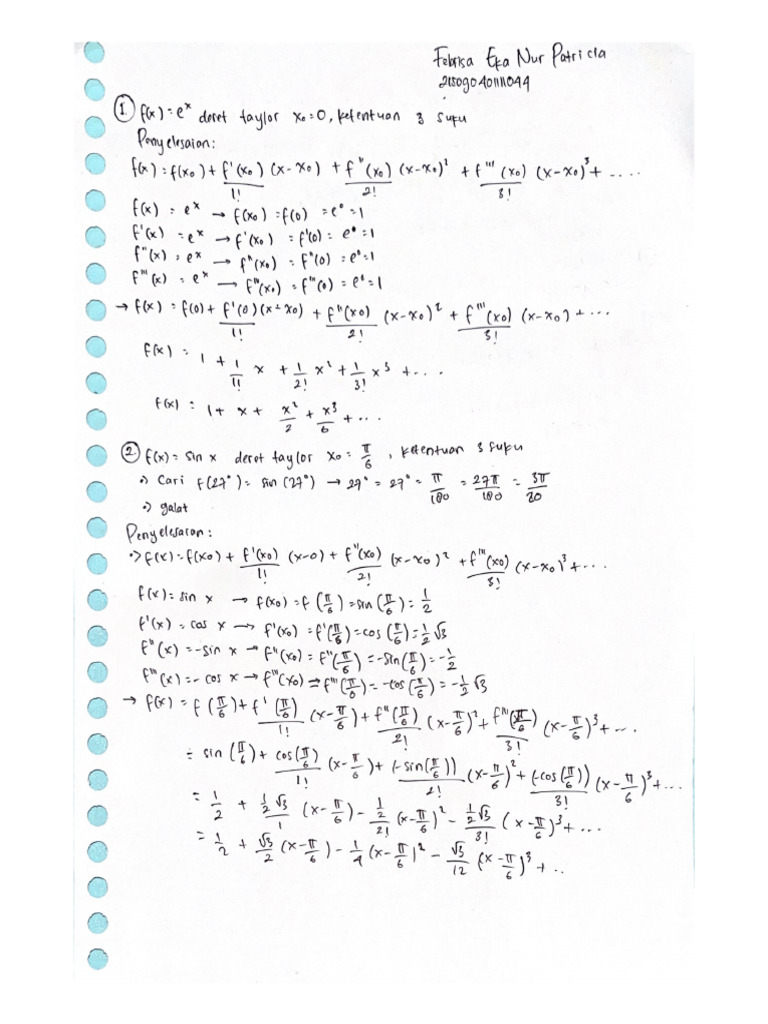 Febrisa Eka Nur Patricia
215090401111044
1. f(x) = e^x deret taylor x₀ = 0, ketentuan 3 suku
Penyelesaian:
f(x) = f(x₀) + f'(x₀)/1! (x - x₀) + f''(x₀)/2! (x - x₀)² + f'''(x₀)/3! (x - x₀)³ + ....
f(x) = e^x → f(x₀) = f(0) = e⁰ = 1
f'(x) = e^x → f'(x₀) = f'(0) = e⁰ = 1
f''(x) = e^x → f''(x₀) = f''(0) = e⁰ = 1
f'''(x) = e^x → f'''(x₀) = f'''(0) = e⁰ = 1
→ f(x) = f(0) + f'(0)(x - x₀)/1! + f''(x₀)/2! (x - x₀)² + f'''(x₀)/3! (x - x₀) + ...
f(x) = 1 + 1/1! x + 1/2! x² + 1/3! x³ + ...
f(x) = 1 + x + x²/2 + x³/6 + ...
2. f(x) = sin x deret taylor x₀ = π/6, ketentuan 3 suku
•) Cari f(27°) = sin (27°) → 27° = 27° = π/180 = 27π/180 = 3π/20
•) galat
Penyelesaian:
•) f(x) = f(x₀) + f'(x₀)/1! (x - 0) + f''(x₀)/2! (x - x₀)² + f'''(x₀)/3! (x - x₀)³ + ...
f(x) = sin x → f(x₀) = f(π/6) = sin(π/6) = 1/2
f'(x) = cos x → f'(x₀) = f'(π/6) = cos(π/6) = 1/2 √3
f''(x) = -sin x → f''(x₀) = f''(π/6) = -sin(π/6) = -1/2
f'''(x) = -cos x → f'''(x₀) = f'''(π/6) = -cos(π/6) = -1/2 √3
→ f(x) = f(π/6) + f'(π/6)/1! (x - π/6) + f''(π/6)/2! (x - π/6)² + f'''(π/6)/3! (x - π/6)³ + ...
= sin(π/6) + cos(π/6)/1! (x - π/6) + (-sin(π/6))/2! (x - π/6)² + (-cos(π/6))/3! (x - π/6)³ + ...
= 1/2 + 1/2 √3/1 (x - π/6) - 1/2/2! (x - π/6)² - 1/2 √3/3! (x - π/6)³ + ...
= 1/2 + √3/2 (x - π/6) - 1/4 (x - π/6)² - √3/12 (x - π/6)³ + ..